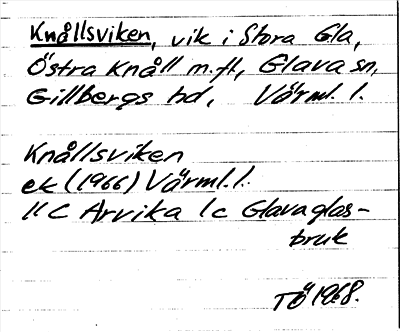 Knållsviken, vik i Stora Gla,
Östra Knåll m.fl., Glava sn,
Gillbergs hd, Värml. l.
Knållsviken
ek (1966) Värml. l.
11 C Arvika 1c Glava glas-
bruk
TÖ 1968.